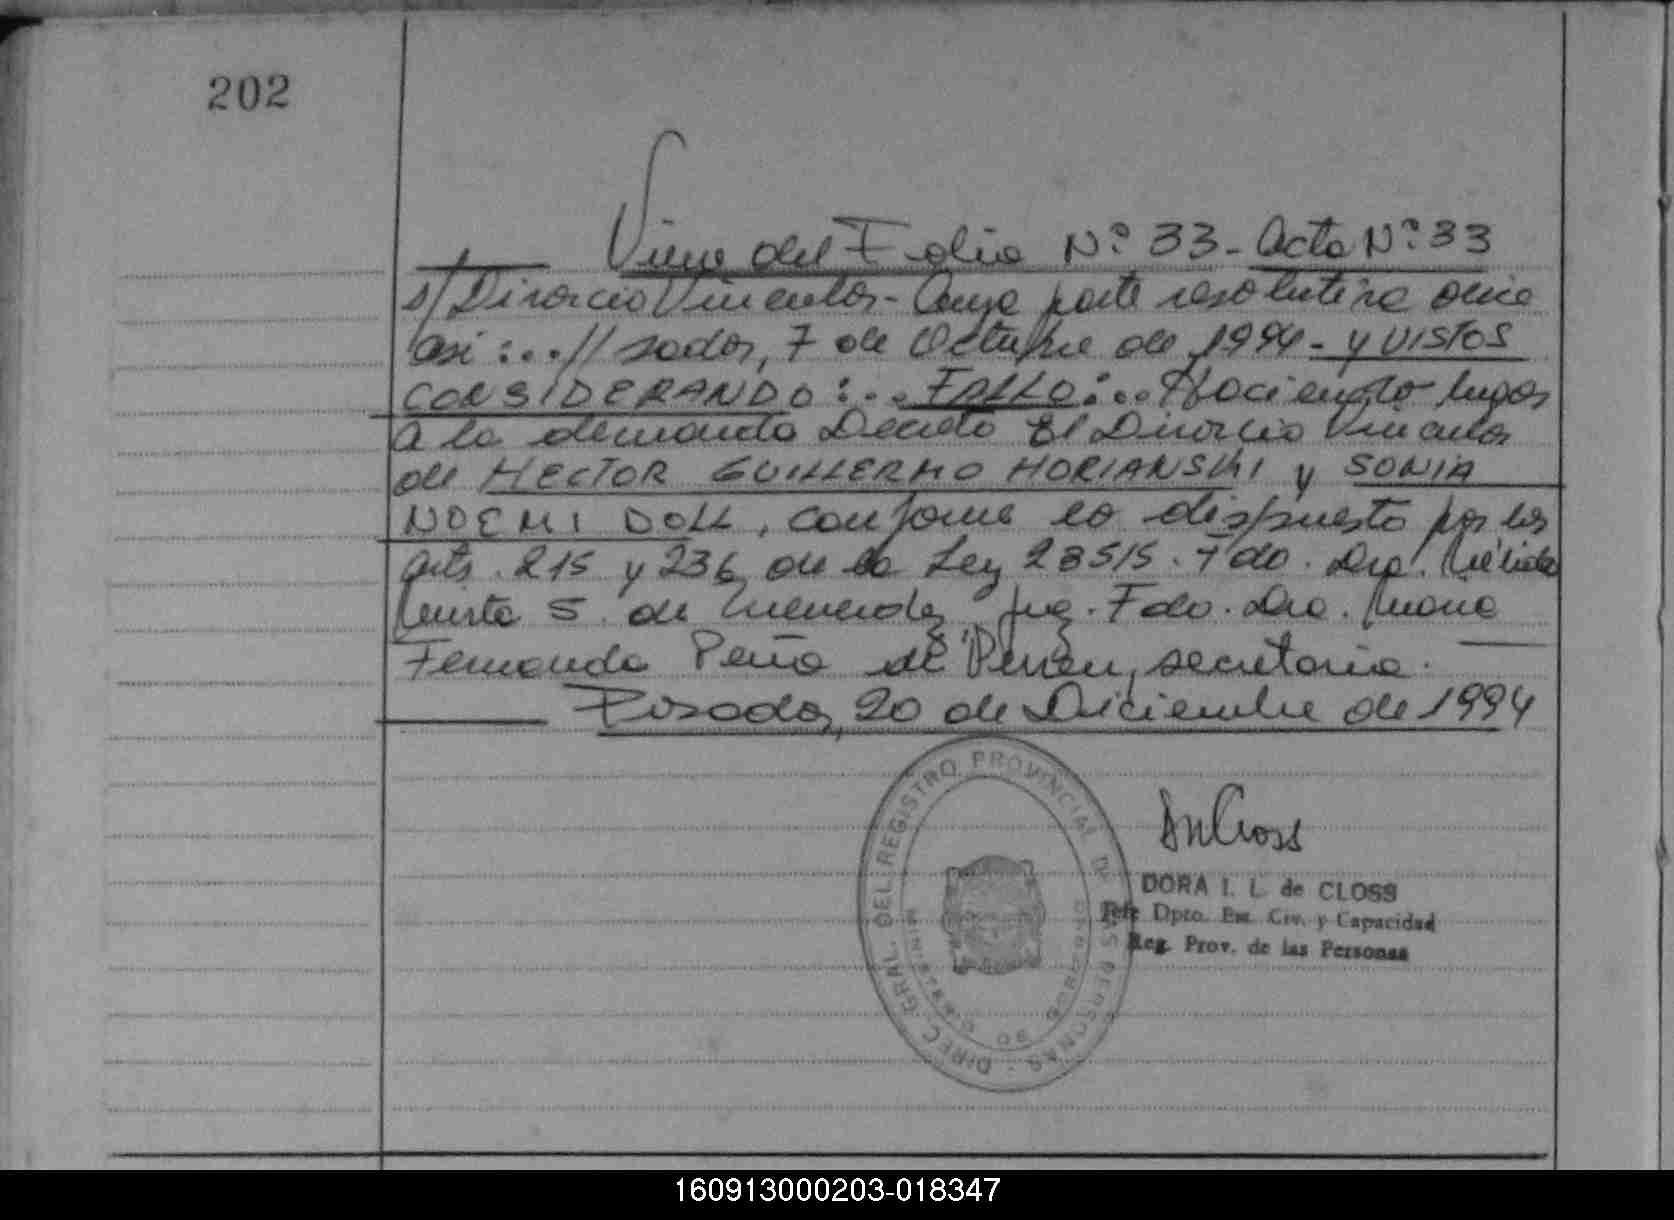 202
Viene del Folio Nº 33 - Acta Nº 33
s/ Divorcio Vincular - Cuya parte resolutiva dice
asi :..// sadas, 7 de Octubre de 1994 - y VISTOS
CONSIDERANDO :.. FALLO :.. Haciendo lugar
a la demanda Decreto El Divorcio Vincular
de HECTOR GUILLERMO MORIANSKI y SONIA
NOEMI DOLL, conforme lo dispuesto por los
arts. 215 y 236 de la Ley 23515. Fdo. Dra.
S. de Juez. Fdo. Dra. Maria
Fernanda Peña de secretaria.
Posadas, 20 de Diciembre de 1994
DIREC. GRAL. DEL REGISTRO PROVINCIAL DE LAS PERSONAS
MINISTERIO DE GOBIERNO
DORA I. L. de CLOSS
Jefe Dpto. Est. Civ. y Capacidad
Reg. Prov. de las Personas
160913000203-018347